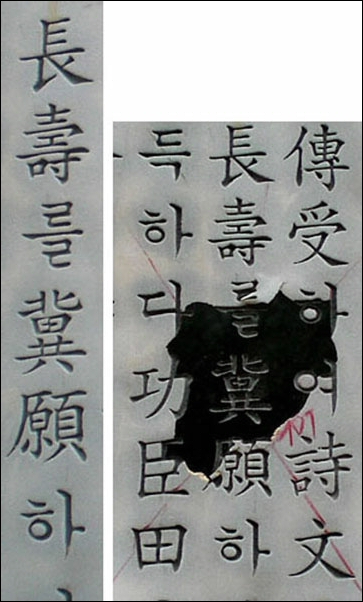 長壽를冀願하
傳受하여詩文
長壽를冀願하
득하다功臣田